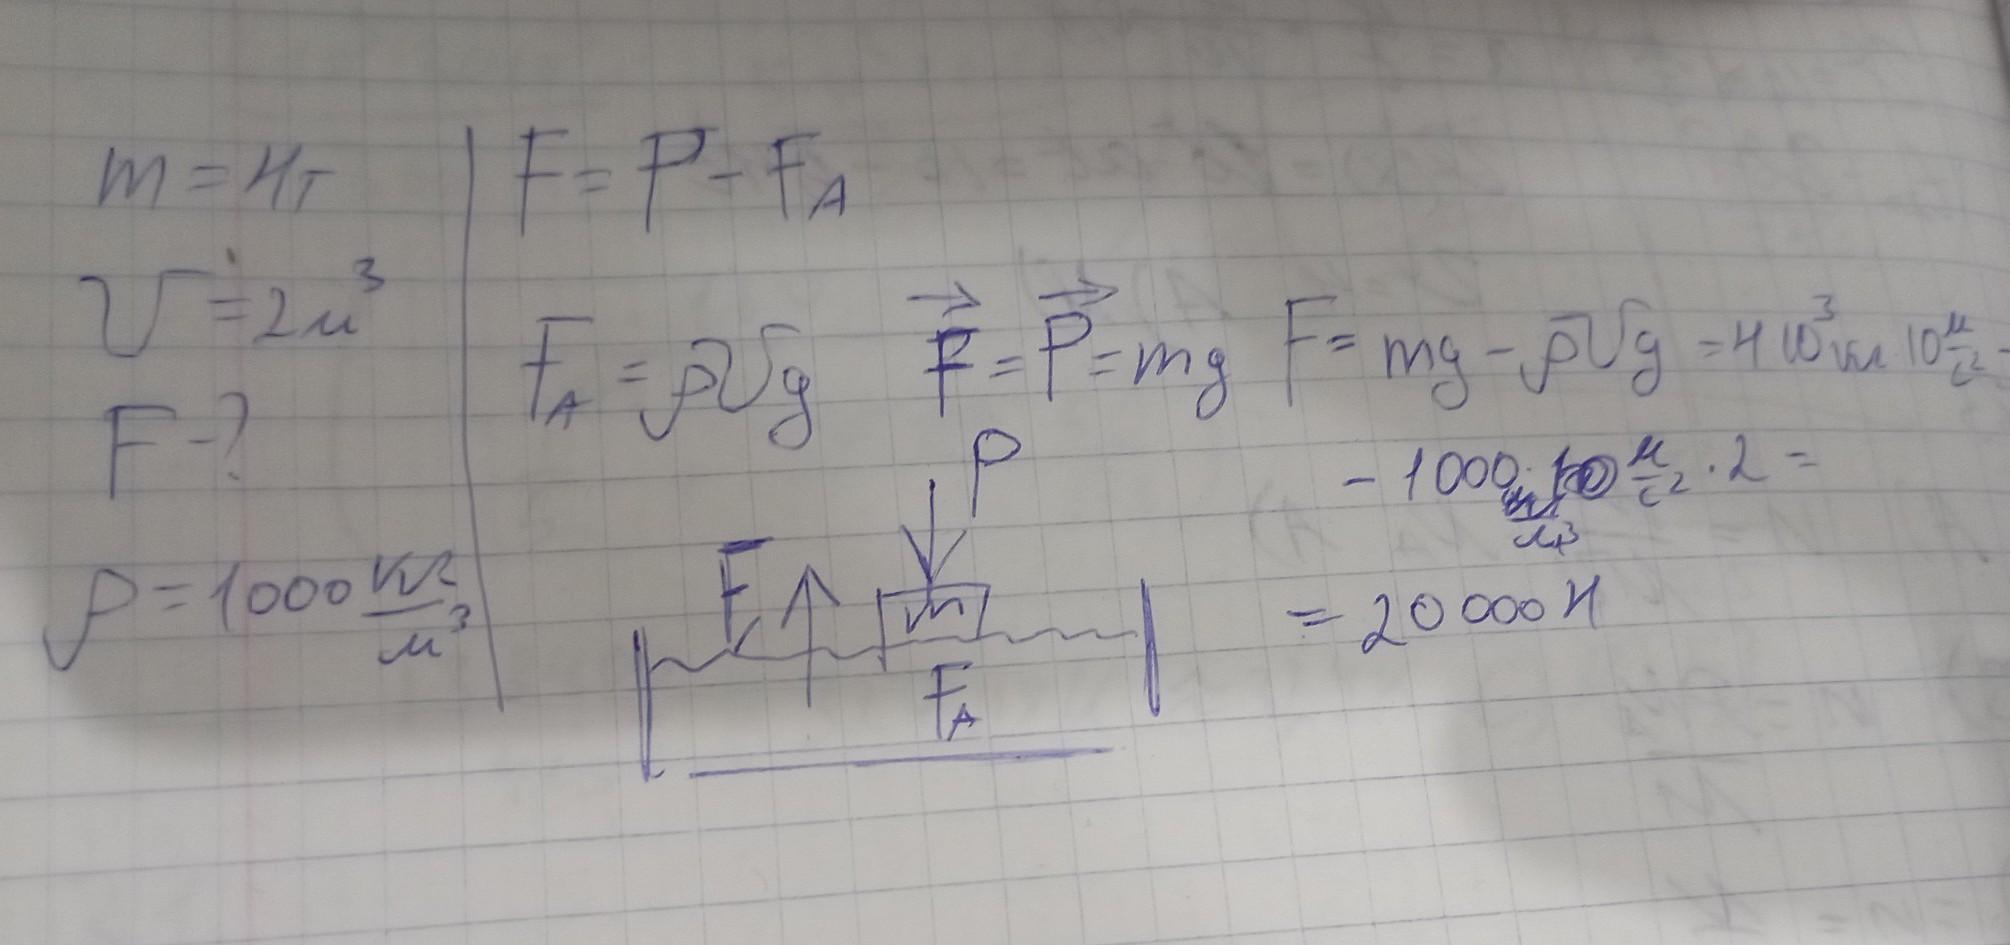 m = 4т
V = 2м³
F - ?
ρ = 1000 кг/м³
F = P - F_A
F_A = ρVg F = P = mg F = mg - ρVg = 4 10³ кг · 10 м/с² -
- 1000 · 10 м/с² · 2 =
= 20 000 Н
P
F
m
F_A